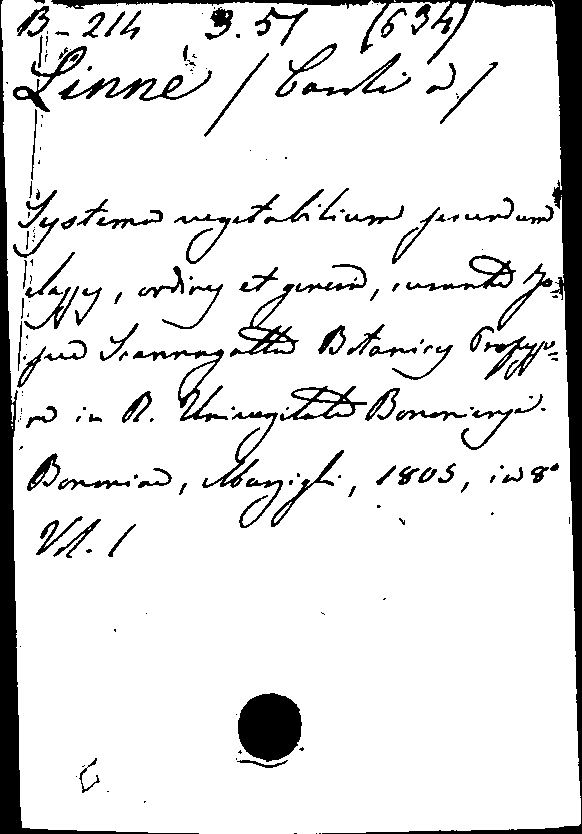 B-214 3.51 (634)
Linné / Carli a /
Systema vegetabilium secundum
classes, ordines et genera, curante Jo-
sue Scannagatta Botanices Professo=
re in R. Universitate Bononiensi.
Bononiae, Marsigli, 1805, in 8°
Vol. 1